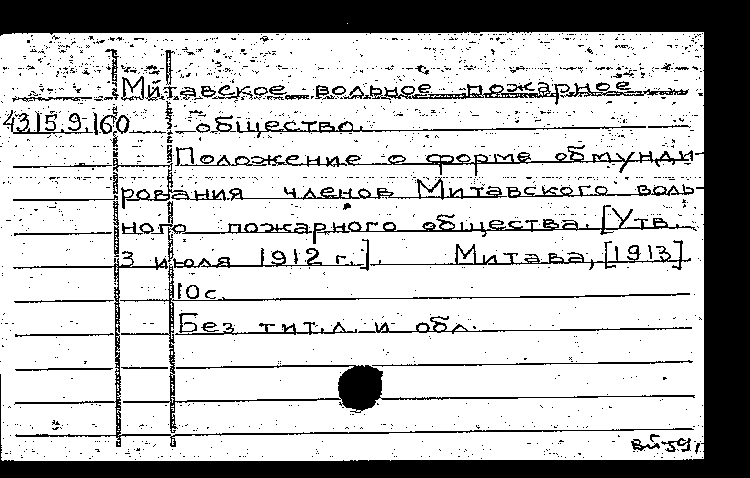 Митавское вольное пожарное
4315.9.160 общество.
Положение о форме обмунди-
рования членов Митавского воль-
ного пожарного общества. [Утв.
3 июля 1912 г.]. Митава, [1913]
10 с.
Без тит. л. и обл.